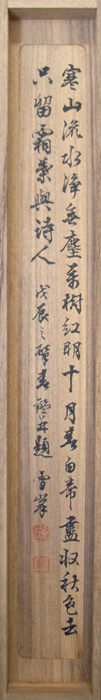 寒山流水淨無塵万樹紅明十月春白帝盡收秋色去
只留霜葉與詩人 戊辰之肇春 題 雪峯